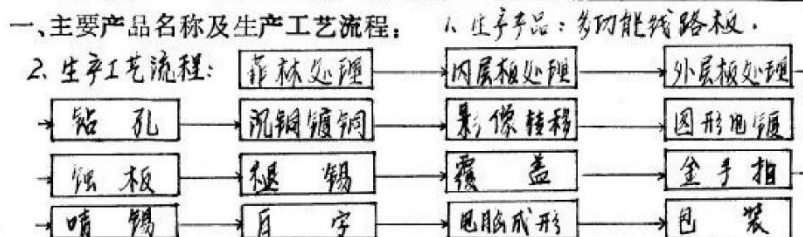 一、主要产品名称及生产工艺流程： 1、生产产品：多功能线路板.
2、生产工艺流程： 菲林处理 内层板处理 外层板处理
钻孔 沉铜镀铜 影像转移 图形电镀
蚀板 褪锡 覆盖 金手指
喷锡 白字 电脑成形 包装